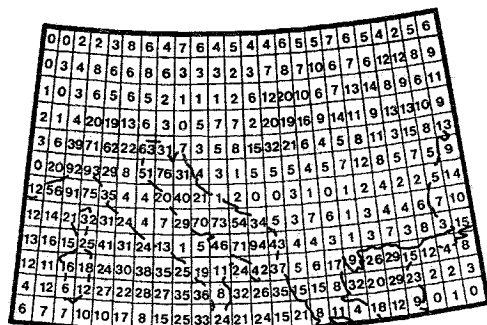 0 0 2 2 3 8 6 4 7 6 4 5 4 4 6 5 5 7 6 5 4 2 5 6
0 3 4 8 6 6 8 6 3 3 3 2 3 7 8 7 10 6 7 6 12 12 8 9
1 0 3 6 5 6 5 2 1 1 1 2 6 12 20 10 6 7 13 14 8 9 6 11
2 1 4 20 19 13 6 3 0 5 7 7 2 20 19 16 9 14 11 9 13 13 10 9
3 6 39 71 62 22 63 31 7 3 5 8 15 32 21 6 4 5 8 11 3 15 8 13
0 20 92 93 29 8 51 76 31 4 3 1 5 5 5 4 5 7 12 8 5 7 5 9
12 56 91 75 35 4 4 20 40 21 1 2 0 0 3 1 0 1 2 4 2 2 5 14
12 14 21 32 31 24 4 7 29 70 73 54 34 5 3 7 6 1 3 4 4 6 7 10
13 16 15 25 41 31 24 13 1 5 46 71 94 43 4 4 3 1 3 7 3 8 3 15
12 11 16 18 24 30 38 35 25 19 11 24 42 37 5 6 17 9 26 29 15 12 4 8
4 12 6 12 27 22 28 27 35 36 8 32 26 35 15 15 8 32 20 29 23 2 2 3
6 7 7 10 10 17 8 15 25 33 24 21 24 15 21 8 11 4 18 12 9 0 1 0